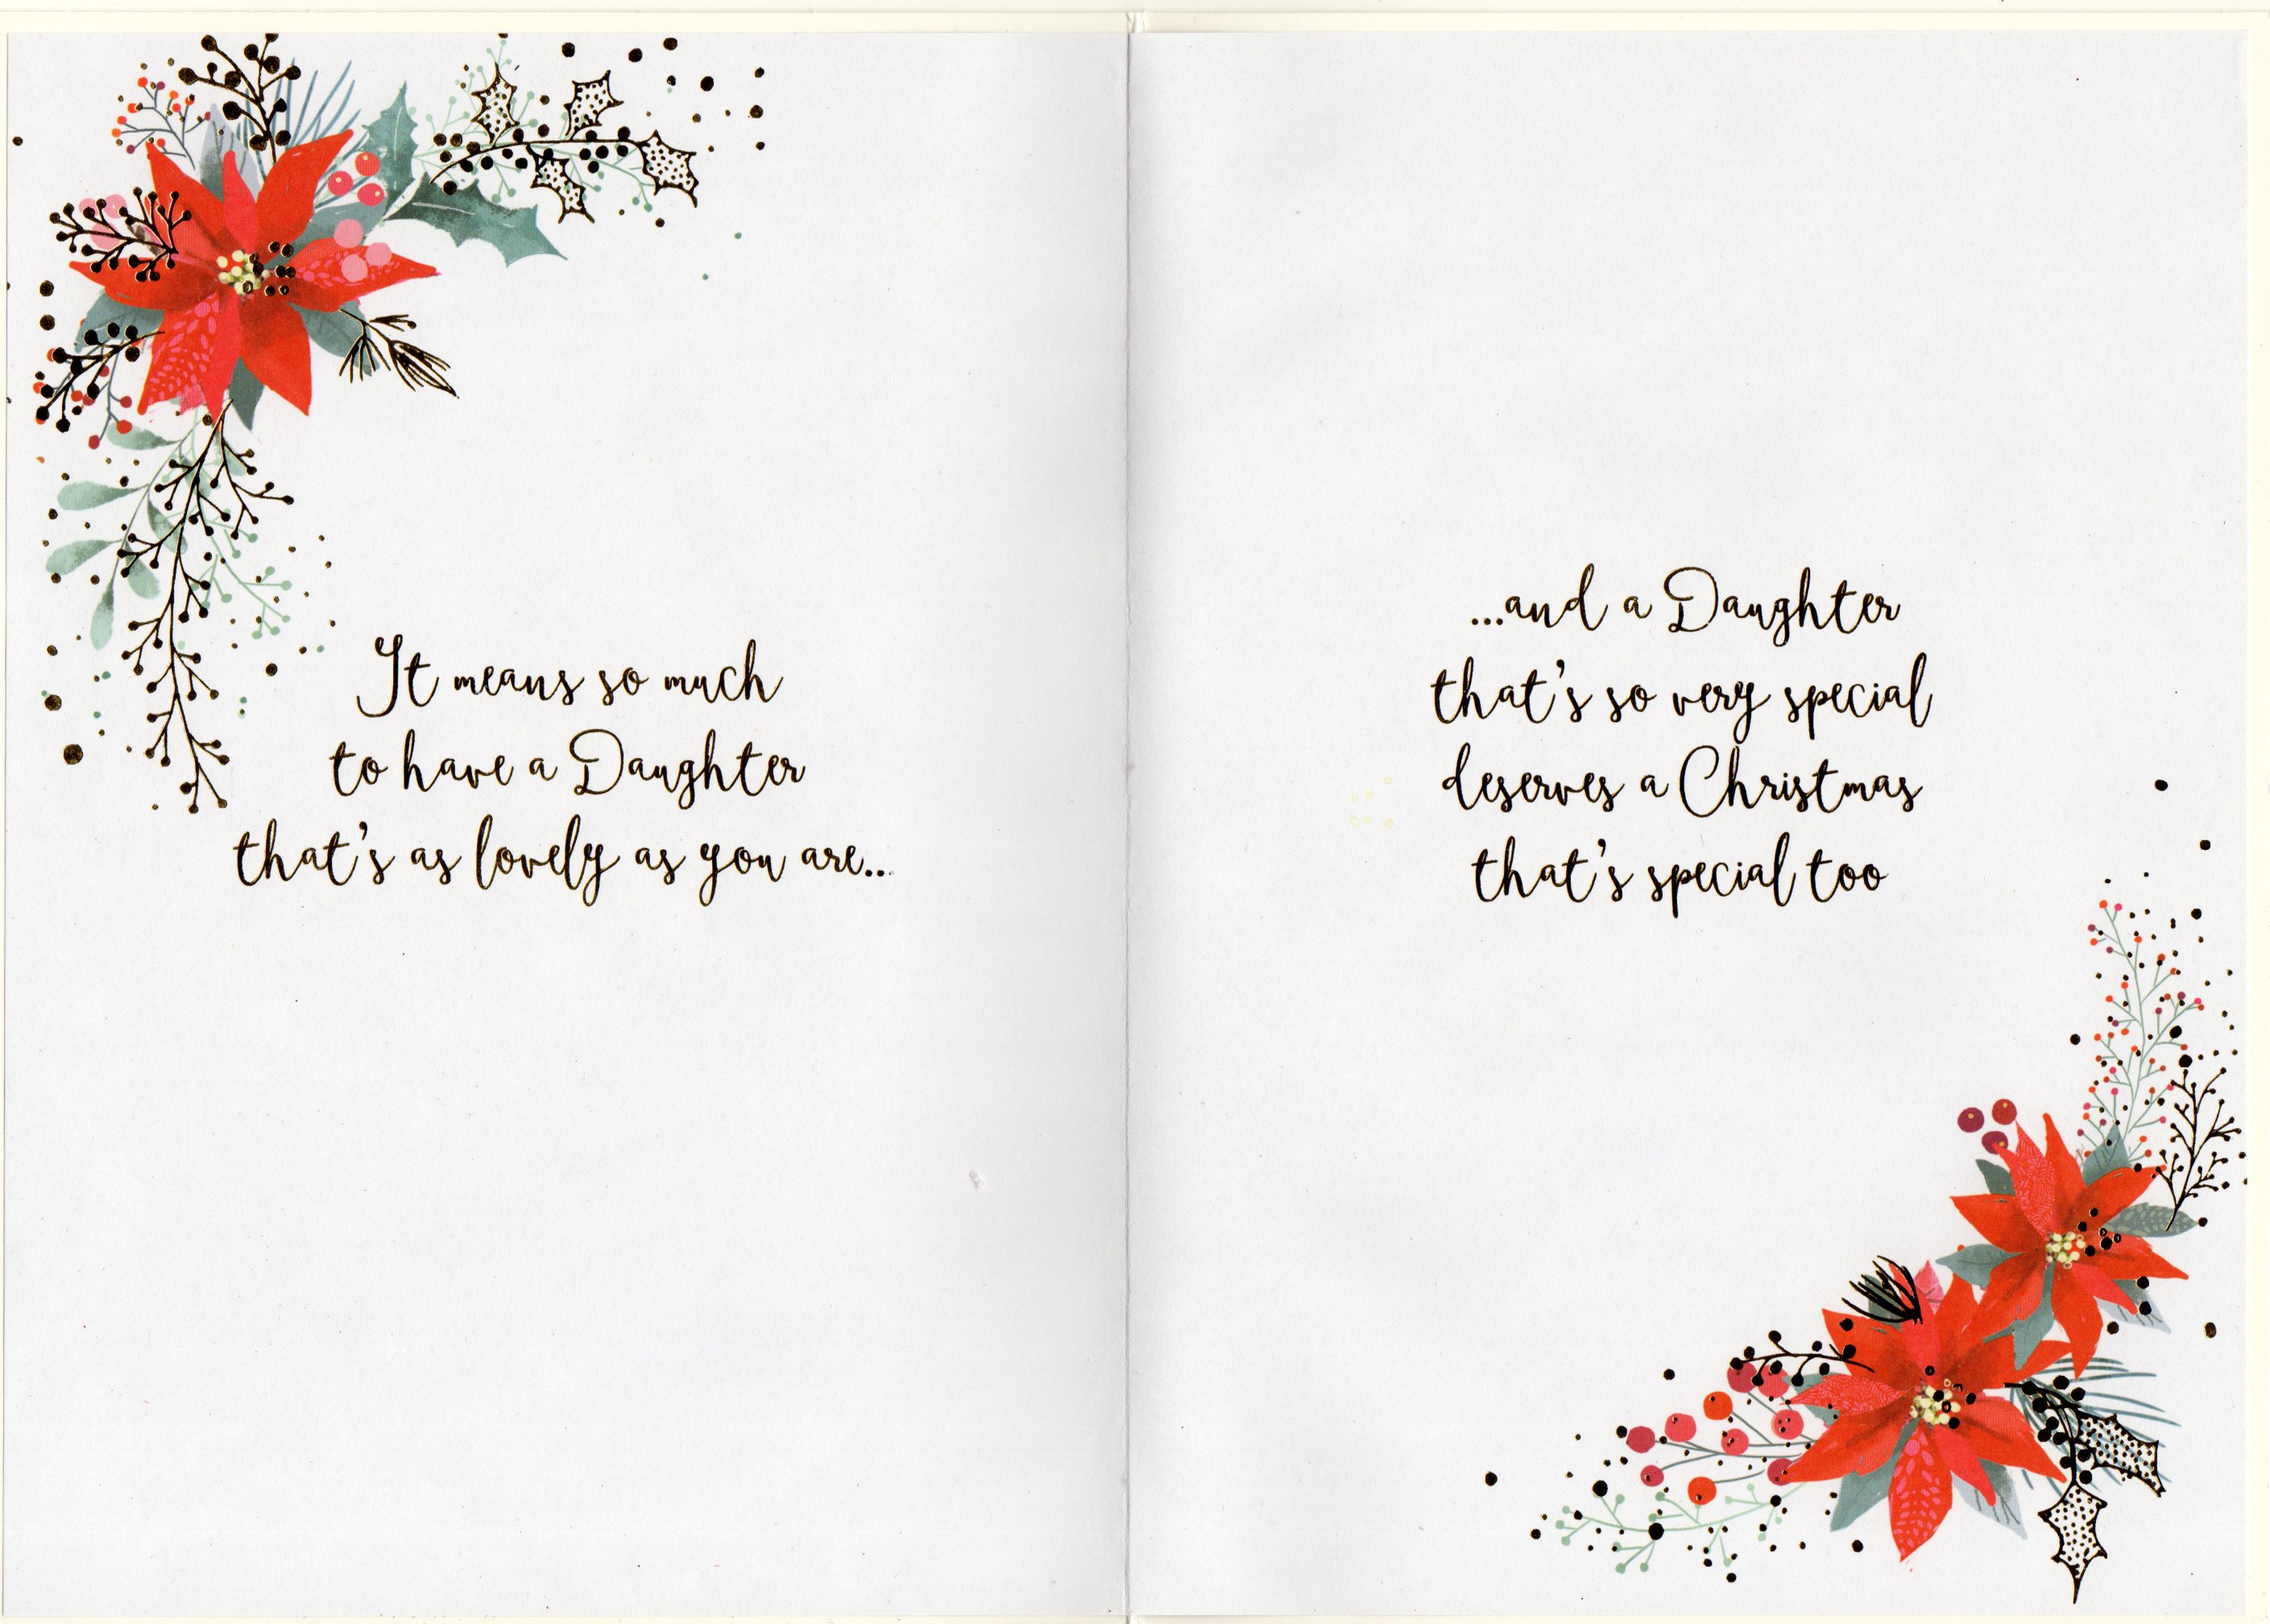 It means so much
to have a Daughter
that's as lovely as you are...
...and a Daughter
that's so very special
deserves a Christmas
that's special too